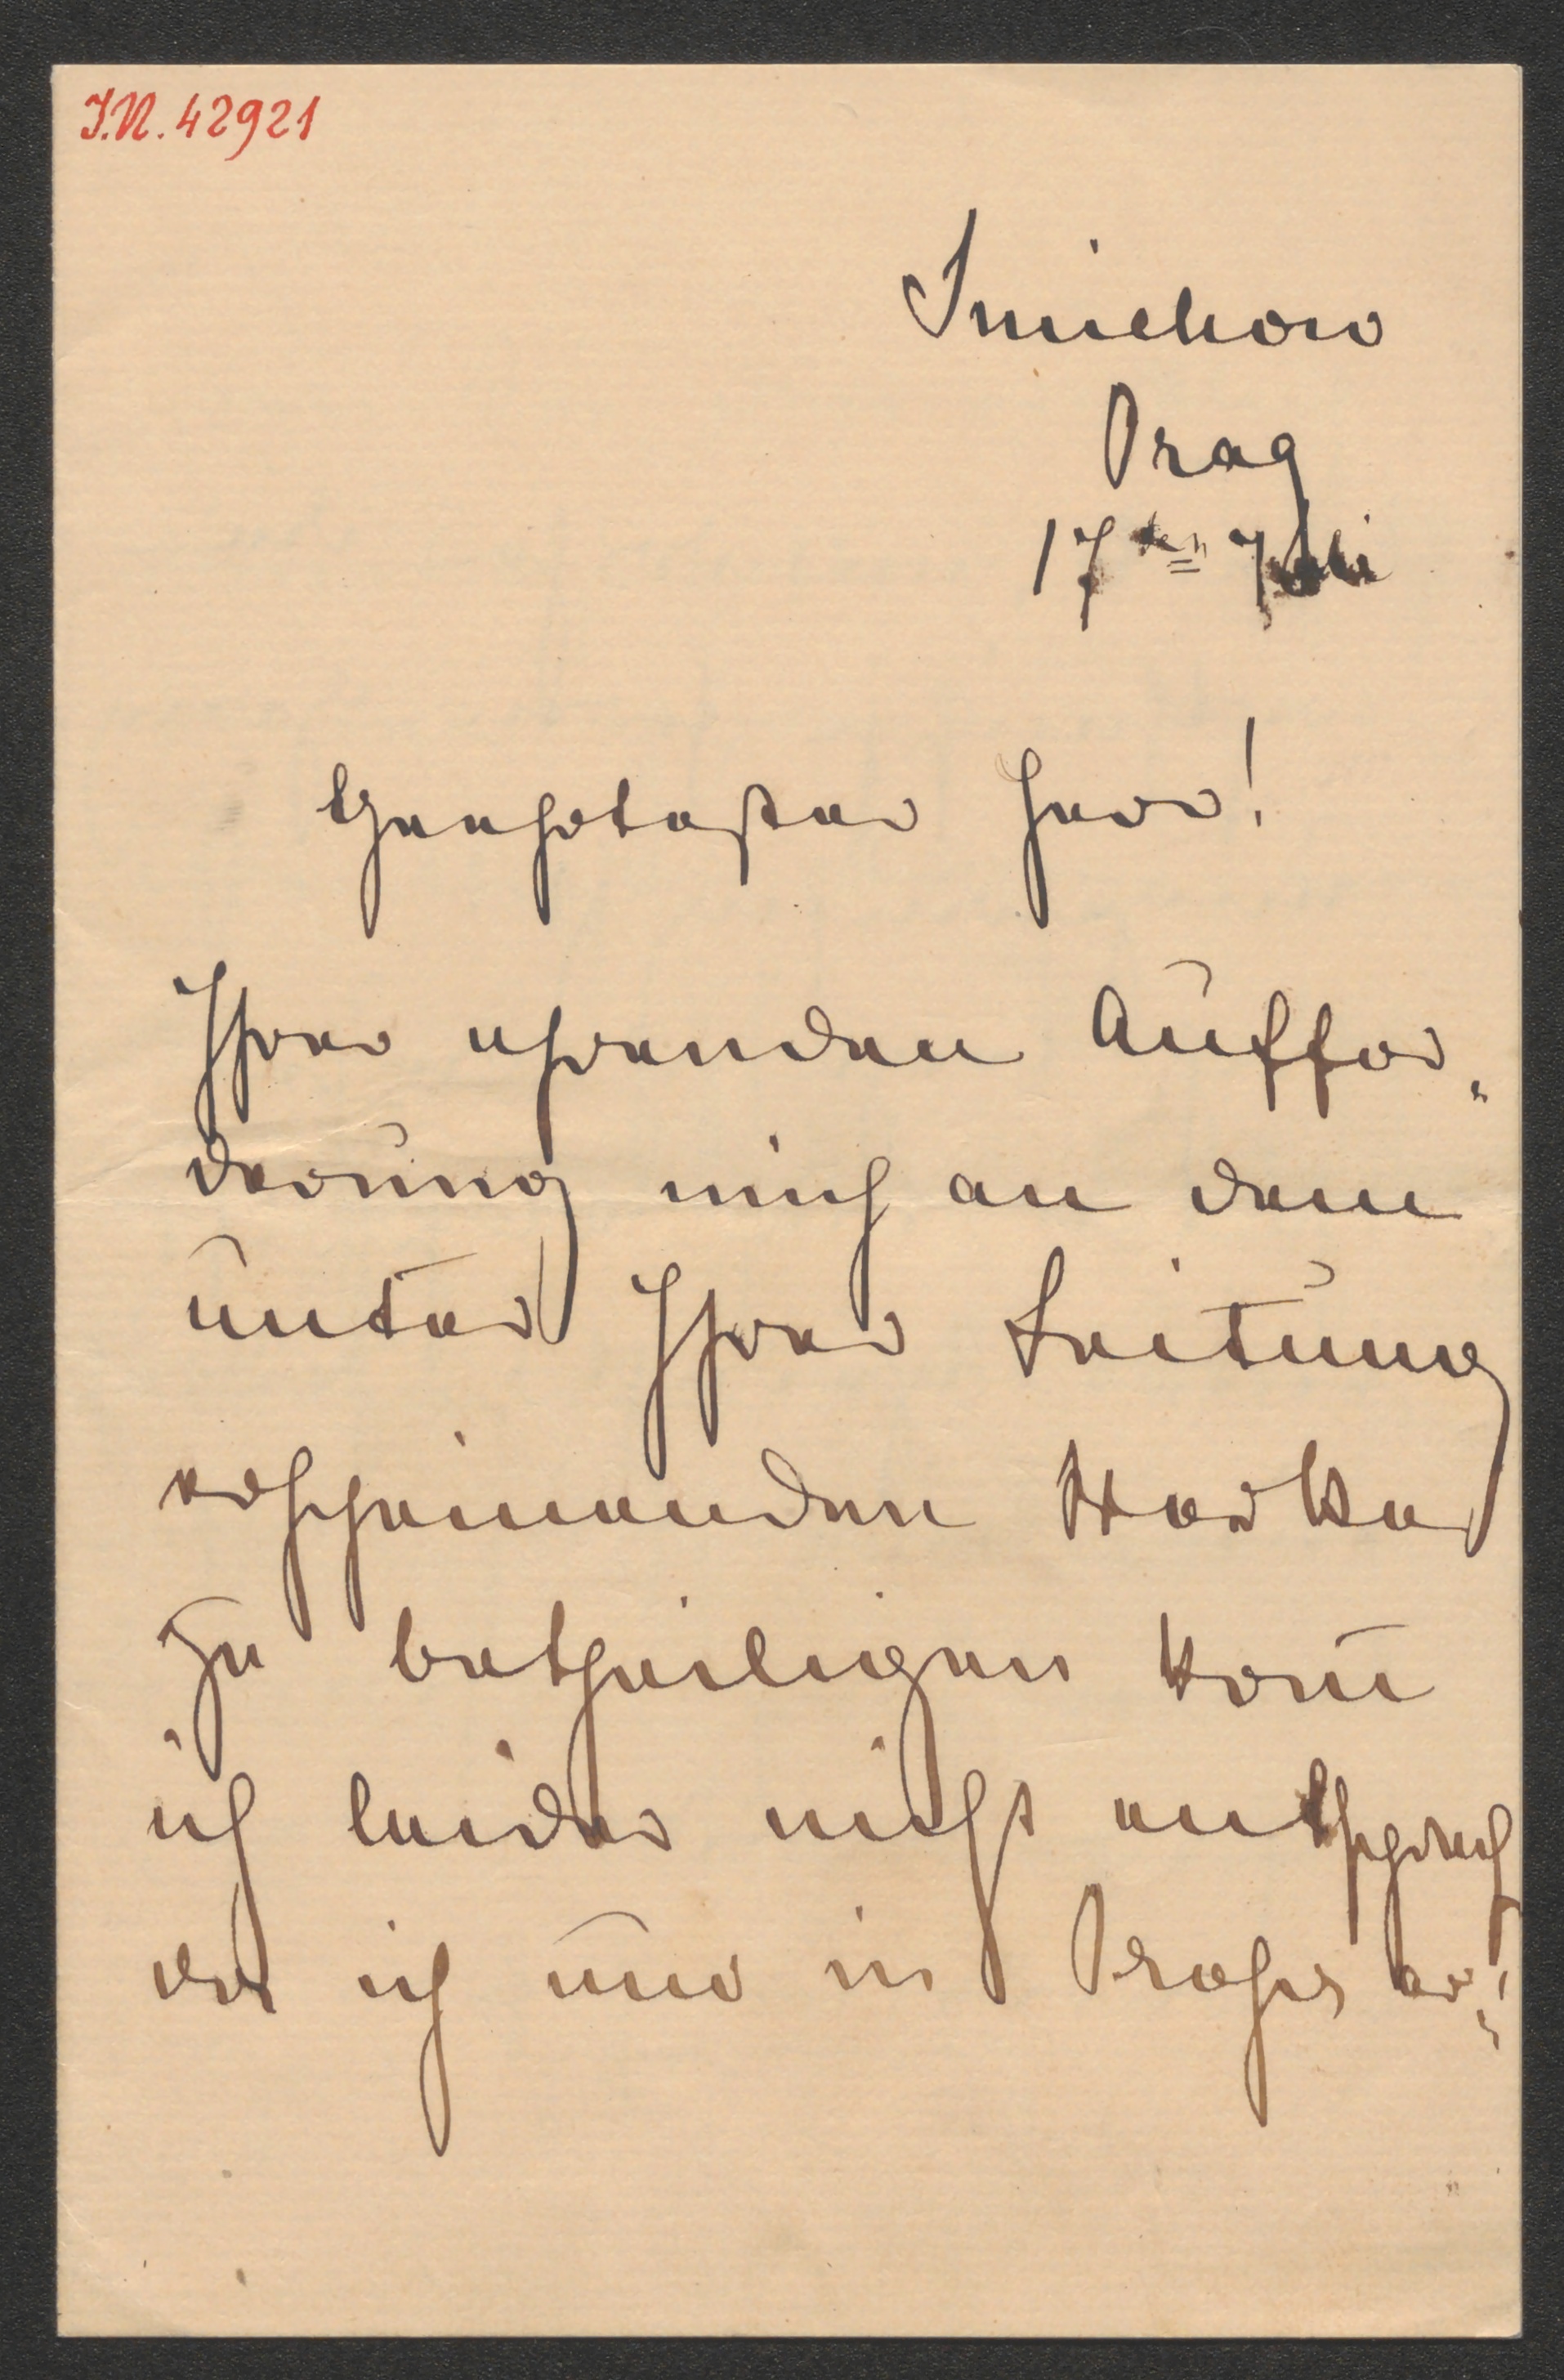 I.N. 42921
Smichow
Prag
17ten Juli
Geehrtester Herr!
Ihrer ehrenden Auffor„
derung mich an dem
unter Ihrer Leitung
erscheinenden Werke
zu betheiligen kom̅
ich leider nicht entsprech
da ich nur in Prosa